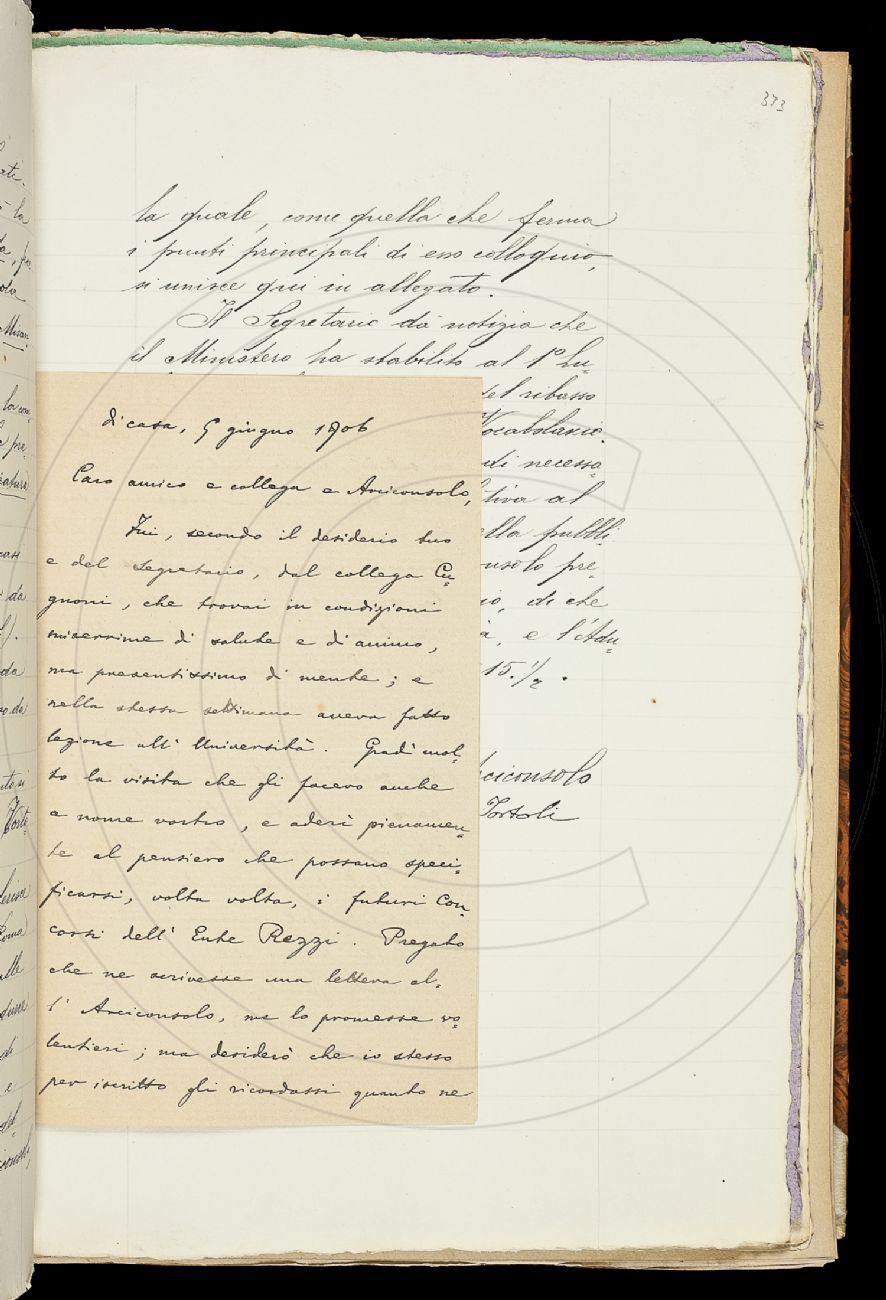 373
la quale, come quella che ferma
i punti principali di esso colloquio,
si unisce qui in allegato.
Il Segretario dà notizia che
il Ministero ha stabilito al 1º Lu-
del ribasso
Vocabolario.
di necessa-
tiva al
ella pubbli-
nsolo pre-
io, di che
a, e l'Adu-
15.1/2.
rciconsolo
Tortoli
di casa, 5 giugno 1906
Caro amico e collega e Arciconsolo,
Fui, secondo il desiderio tuo
e del Segretario, dal collega Cu-
gnoni, che trovai in condizioni
miserrime di salute e di animo,
ma presentissimo di mente; e
nella stessa settimana aveva fatto
lezione all'Università. Gradì mol-
to la visita che gli facevo anche
a nome vostro, e aderì pienamen-
te al pensiero che possano speci-
ficarsi, volta volta, i futuri Con-
corsi dell'Ente Rezzi. Pregato
che ne scrivesse una lettera al-
l'Arciconsolo, me lo promesse vo-
lentieri; ma desiderò che io stesso
per iscritto gli ricordassi quanto ne